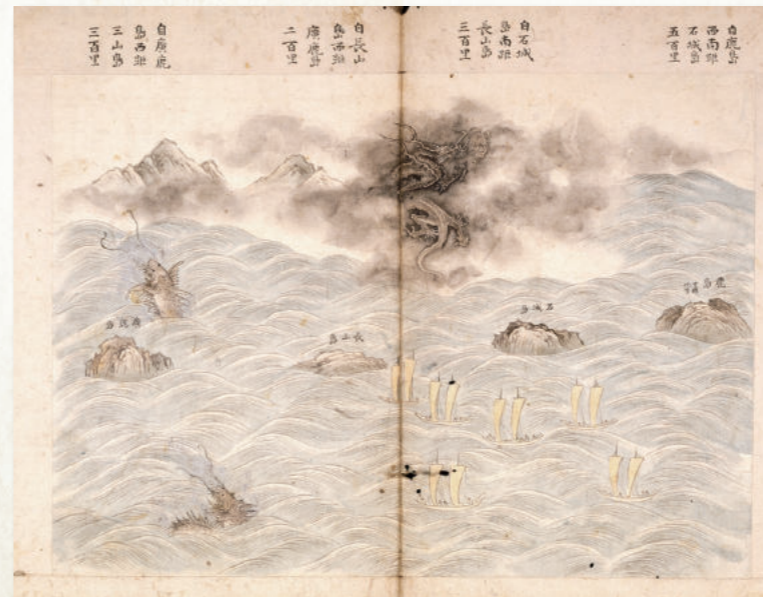 自鹿島
西南距
石城島
五百里
自石城
島南距
長山島
三百里
自長山
島西距
廣鹿島
二百里
自廣鹿
島西距
三山島
三百里
鹿島
石城島
長山島
廣鹿島